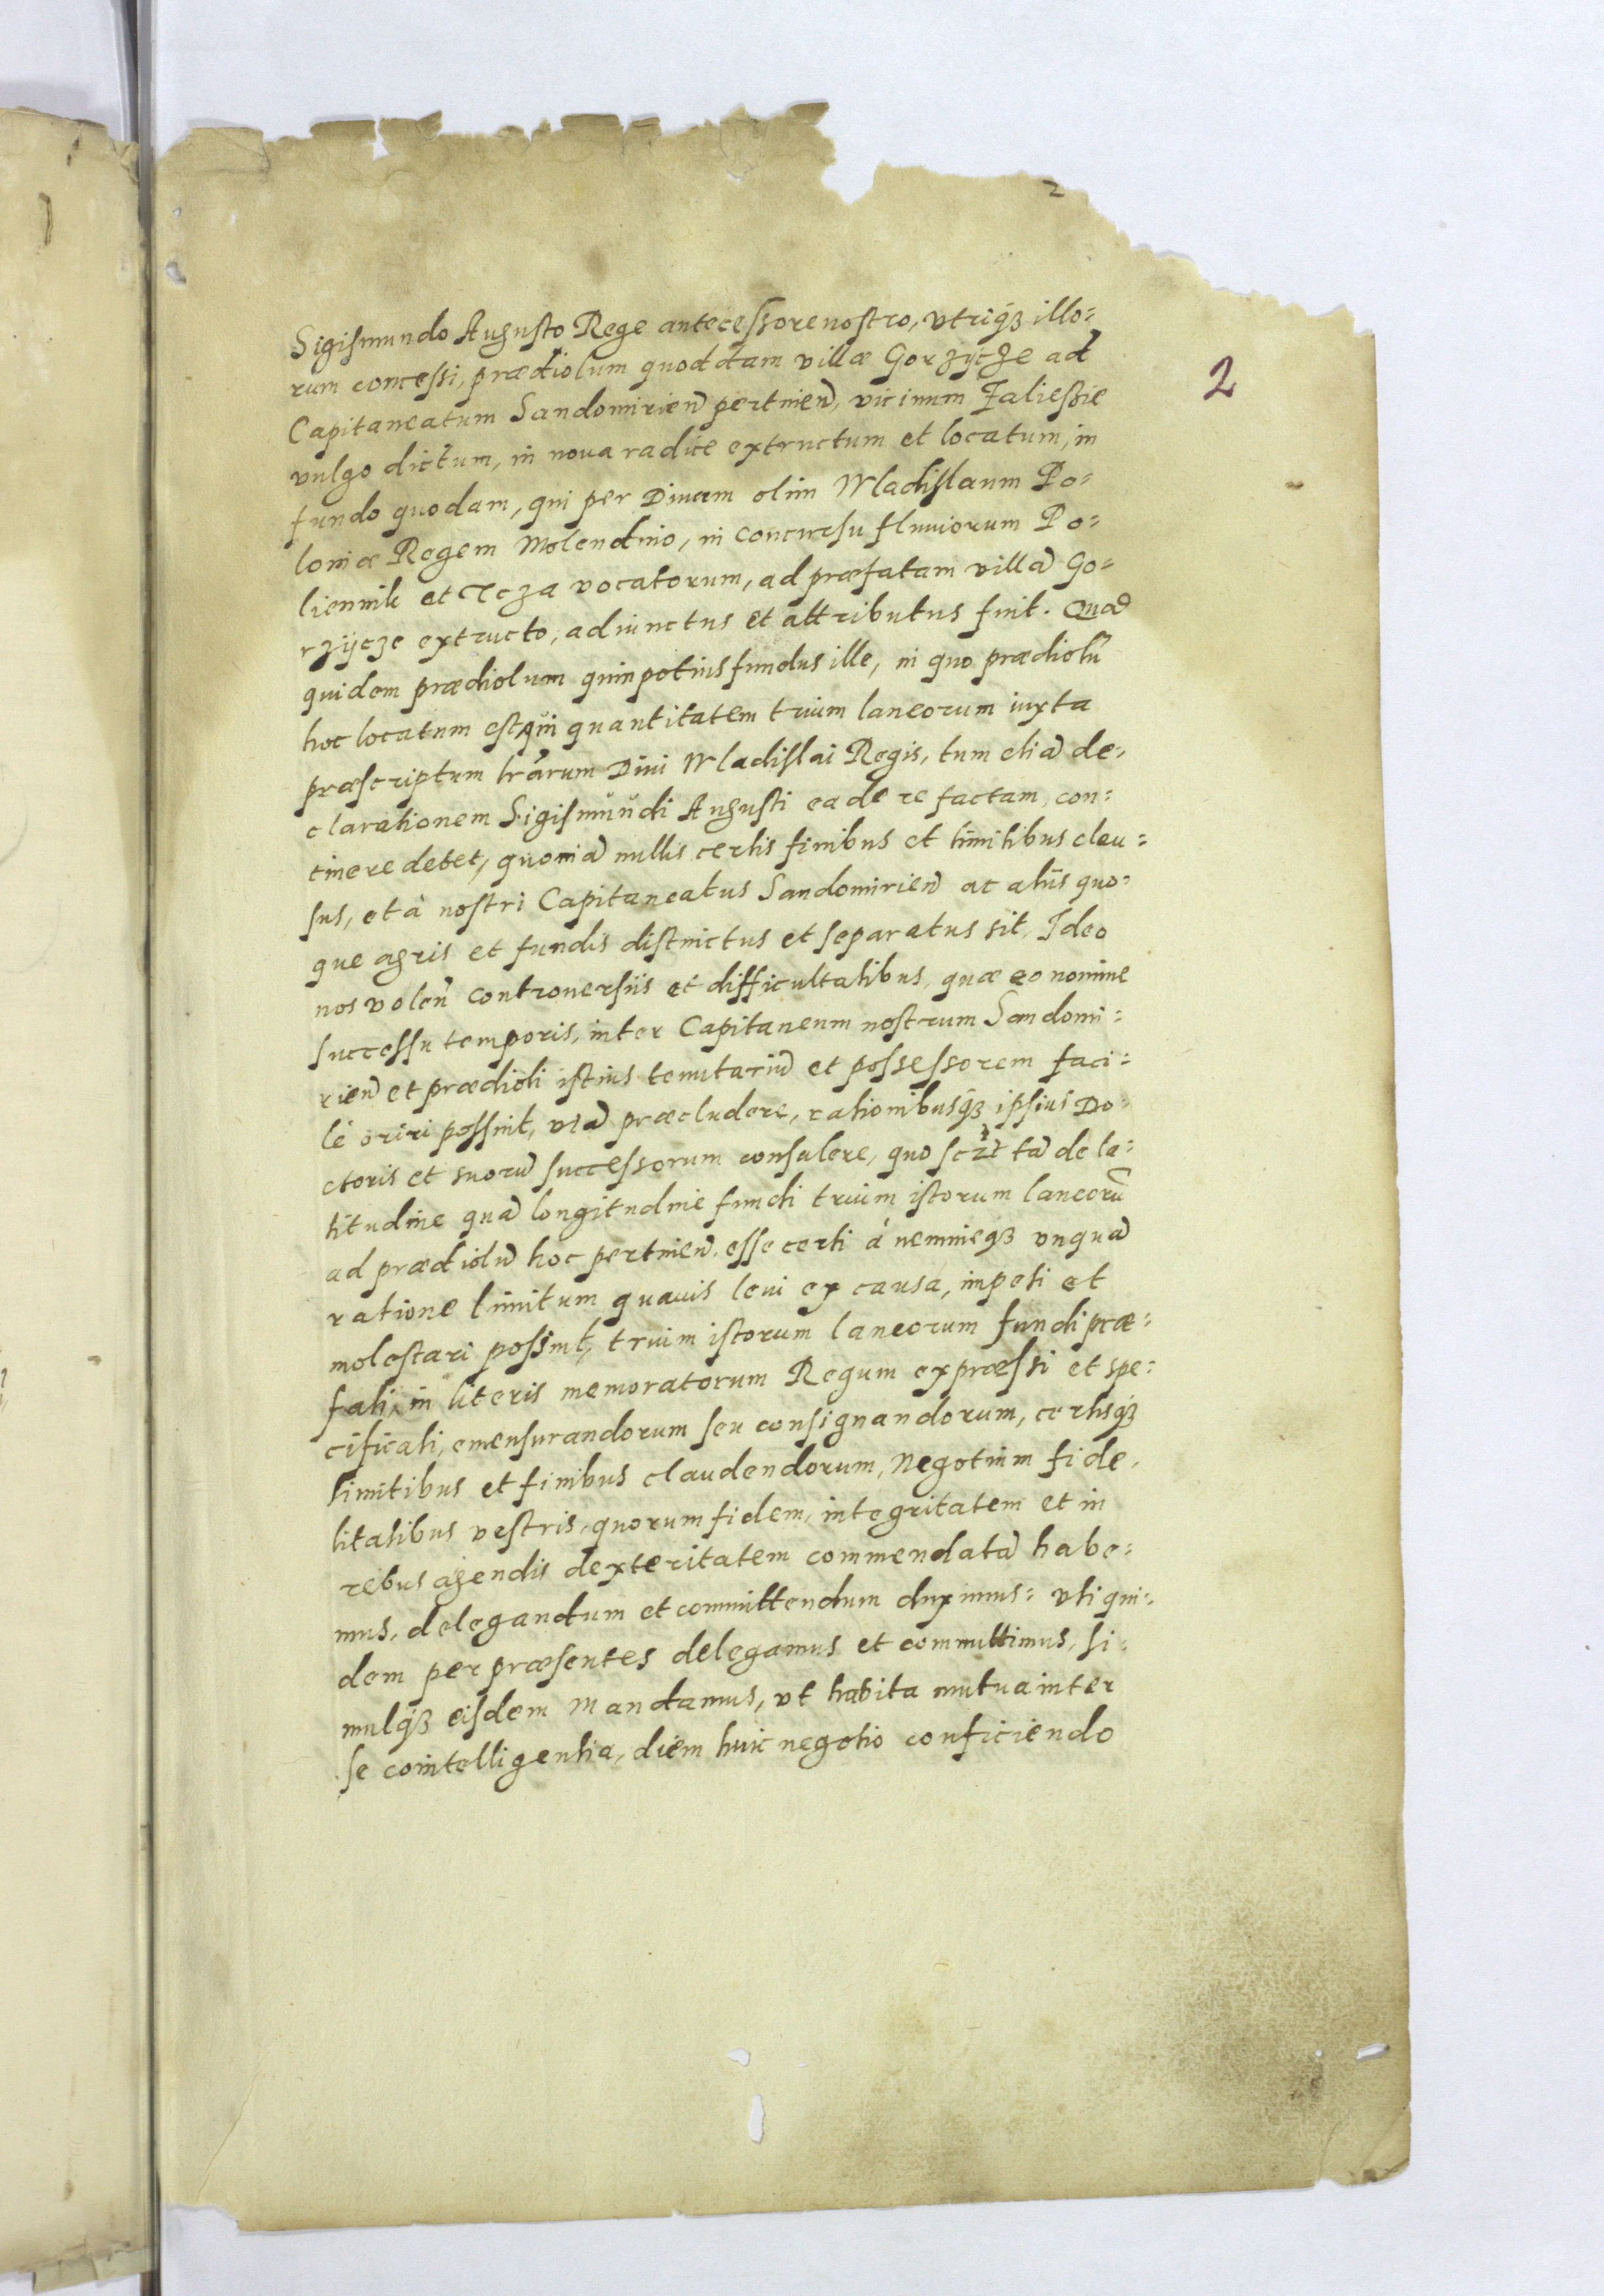 2
Sigismundo Augusto Rege antecessore nostro, vtriq́ꝫ illo=
rum concessi, prædiolum quoddam villæ Gorzÿcze ad
2
Capitaneatum Sandomirien̄ pertinen̄, vicinum Zaliessie
vulgo dictum, in noua radice extructum et locatum, in
fundo quodam, qui per Diuum olim Wladislaum Po=
loniæ Regem Molendino, in concursu fluuiorum Po=
liennik et vocatorum, ad præfatam villā Go=
rzÿcze extructo, adiunctus et attributus fuit. Quod
quidem prædiolum quinpotius fundus ille, in quo prædiolū
hoc locatum est, quantitatem trium laneorum iuxta
præscriptum lr̄arum Diui Wladislai Regis, tum etiā de=
clarationem Sigismŭndi Augusti ea de re factam, con=
tinere debet, quoniā nullis certis finibus et limitibus clau=
sus, et à nostri Capitaneatus Sandomirien̄ ac alÿs quo=
que agris et fundis distinctus et separatus sit. Ideo
nos volen̄ controuersÿs et difficultatibus, quæ eo nomine
successu temporis, inter Capitaneum nostrum Sandomi=
rien̄ et prædioli istius tenutariū et possessorem faci=
lè oriri possint, viā præcludere, rationibusq́ꝫ ipsius Do=
ctoris et suorū successorum consulere, quo tā de la=
titudine quā longitudine fundi trium istorum laneorū
ad prædiolū hoc pertinen̄. esse certi à nemineq́ꝫ vnquā
ratione limitum quauis leui ex causa, impeti et
molestari possint, trium istorum laneorum fundi præ=
fati, in literis memoratorum Regum expræssi et spe=
cificati, emensurandorum seu consignandorum, certisq́ꝫ
limitibus et finibus claudendorum, Negotium fide,
litatibus vestris, quorum fidem, integritatem et in
rebus agendis dexteritatem commendatā habe=
mus, delegandum et committendum duximus: vti qui=
dem per præsentes delegamus et committimus, si=
mulq́ꝫ eisdem Mandamus, vt habita mutua inter
se cointelligentia, diem huic negotio conficiendo